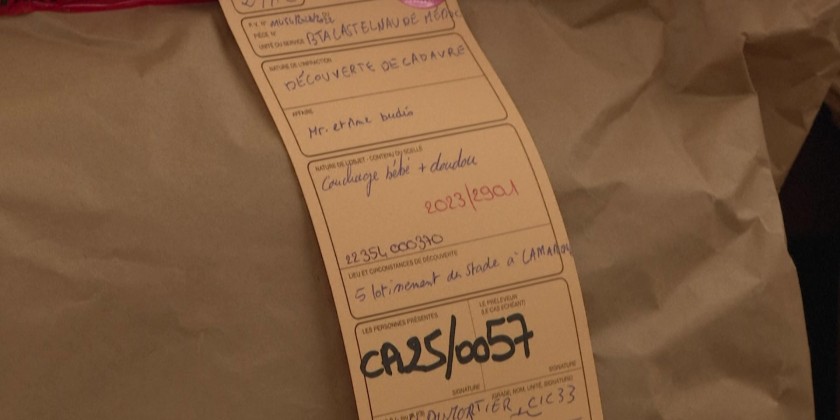 PIÈCE N°
UNITÉ DU SERVICE BTA CASTELNAU DE MÉDOC
NATURE DE L'INFRACTION
DÉCOUVERTE DE CADAVRE
AFFAIRE
Mr. et Mme
NATURE DE L'OBJET - CONTENU DU SCELLÉ
Couchage bébé + doudou
2023/2901
22354 000370
LIEU ET CIRCONSTANCES DE DÉCOUVERTE
5 lotissement du stade à LAMAROU
LES PERSONNES PRÉSENTES
LE PRÉLEVEUR
(LE CAS ÉCHÉANT)
CA25/0057
SIGNATURE
SIGNATURE
DUMORTIER CIC33